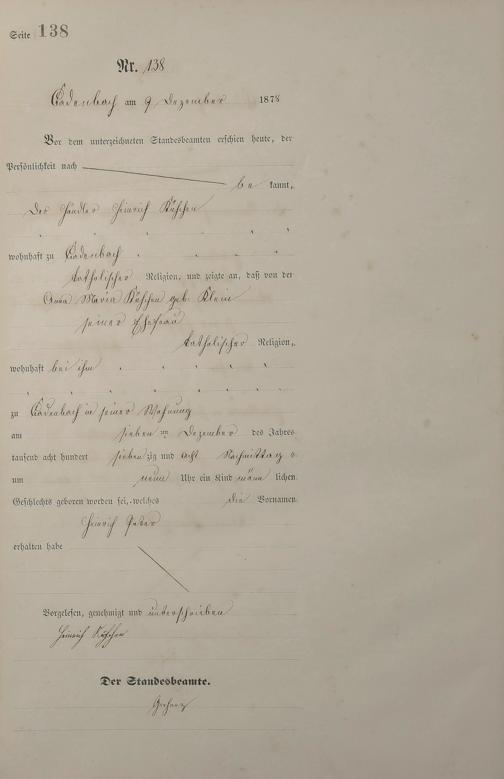 Seite 138
Nr. 138
Cadenbach am 9 Dezember 1878
Vor dem unterzeichneten Standesbeamten erschien heute, der
Persönlichkeit nach
be kannt,
Der Händler Heinrich
wohnhaft zu Cadenbach
katholischer Religion, und zeigte an, daß von der
Anna Maria geb. Klein
seiner Ehefrau
katholischer Religion,
wohnhaft bei ihm
zu Cadenbach in seiner Wohnung
am sieben ten Dezember des Jahres
tausend acht hundert sieben zig und acht Nachmittag s
um neun Uhr ein Kind männ lichen
Geschlechts geboren worden sei, welches die Vornamen
Heinrich Peter
erhalten habe
Vorgelesen, genehmigt und unterschrieben
Heinrich
Der Standesbeamte.